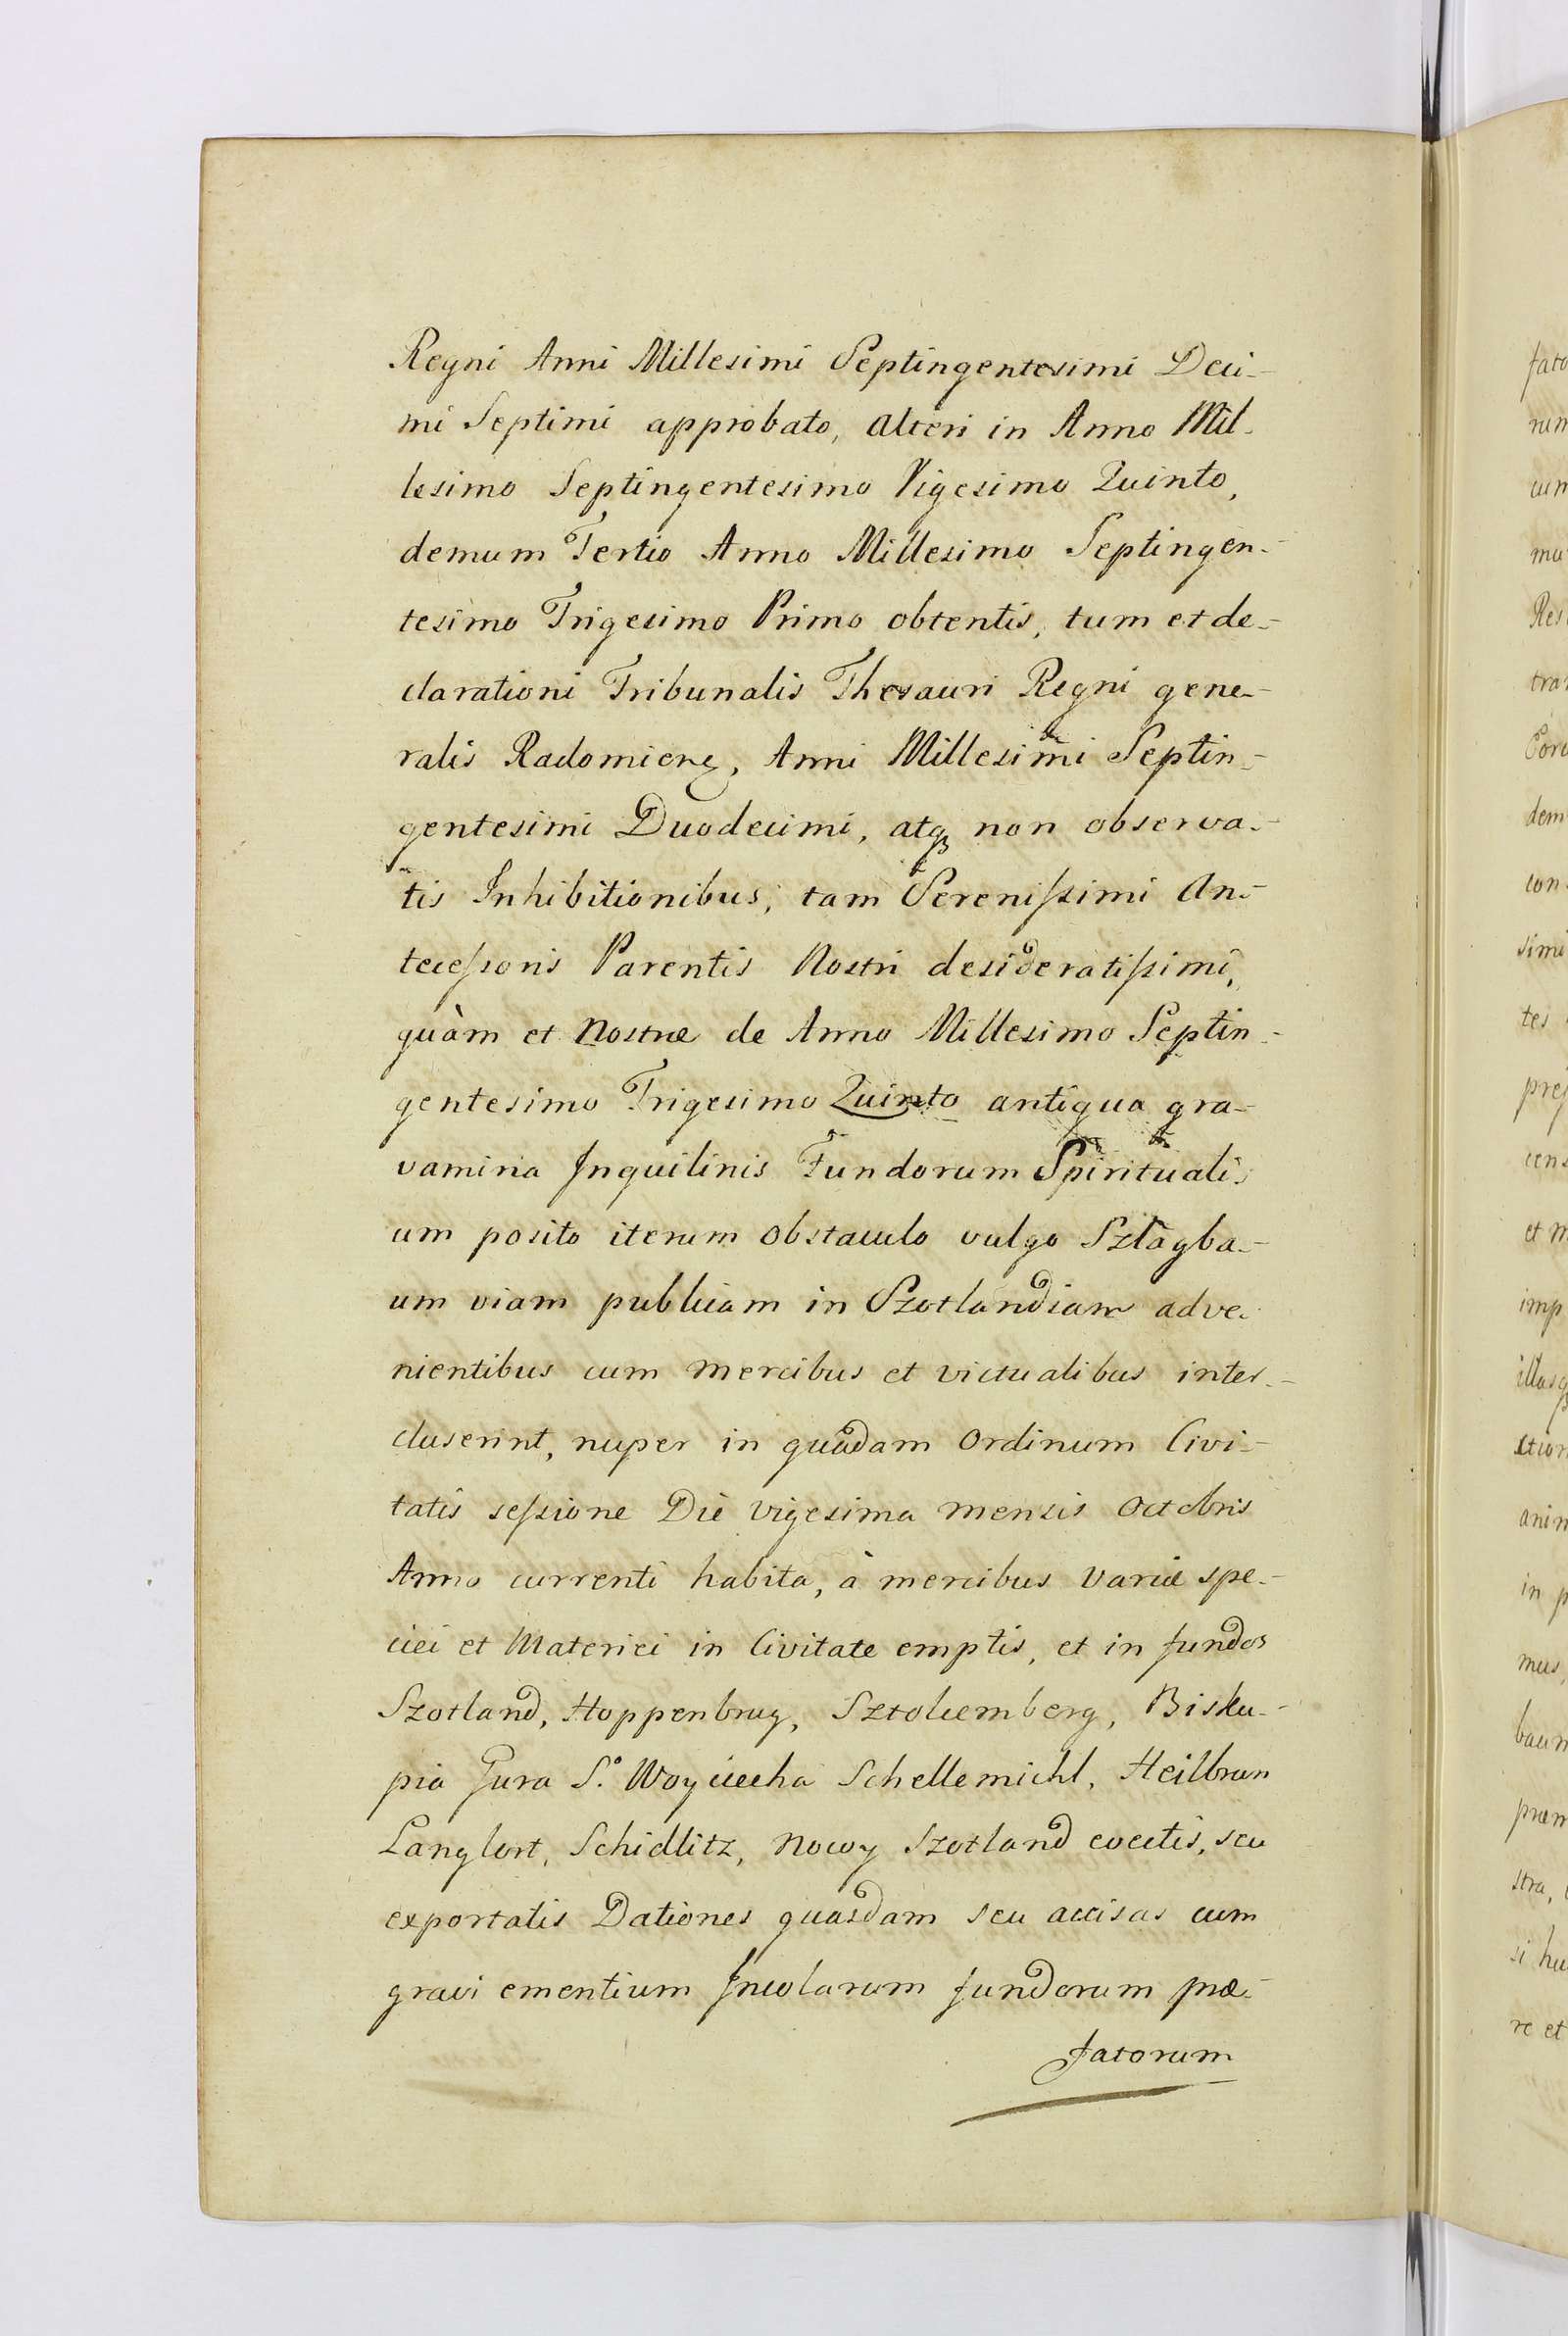 Regni Anni Millesimi Septingentesimi Deci-
mi Septimi approbato, alteri in Anno Mil-
lesimo Septingentesimo Vigesimo Quinto,
demum Tertio Anno Millesimo Septingen-
tesimo Trigesimo Primo obtentis, tum et de-
clarationi Tribunalis Thesauri Regni gene-
ralis Radomiens, Anni Millesimi Septin-
gentesimi Duodecimi, atq non observa-
tis Inhibitionibus, tam Serenissimi An-
tecessoris Parentis Nostri desideratissimi,
quàm et Nostræ de Anno Millesimo Septin-
gentesimo Trigesimo Quinto antiqua gra-
vamina Inquilinis Fundorum Spirituali-
um posito iterum obstaculo vulgo Szlagba-
um viam publicam in Szotlandiam adve-
nientibus cum mercibus et victualibus inter-
cluserint, nuper in quadam Ordinum Civi-
tatis sessione Die vigesima mensis Octobris
Anno currenti habita, à mercibus variæ spe-
ciei et Materiei in Civitate emptis, et in fundos
Szotland, Hoppenbrug, Sztolcemberg, Bisku-
pia Gura S.o Woyciecha Schellemichl, Heilbrun
Langfort, Schidlitz, Nowy Szotland evectis, seu
exportatis Dationes quasdam seu accisas cum
gravi ementium Incolarum fundorum præ-
fatorum
fato
cum
tra
dem
con
simi
tes
et m
imp
in p
mus,
baum
stra,
si hu
re et